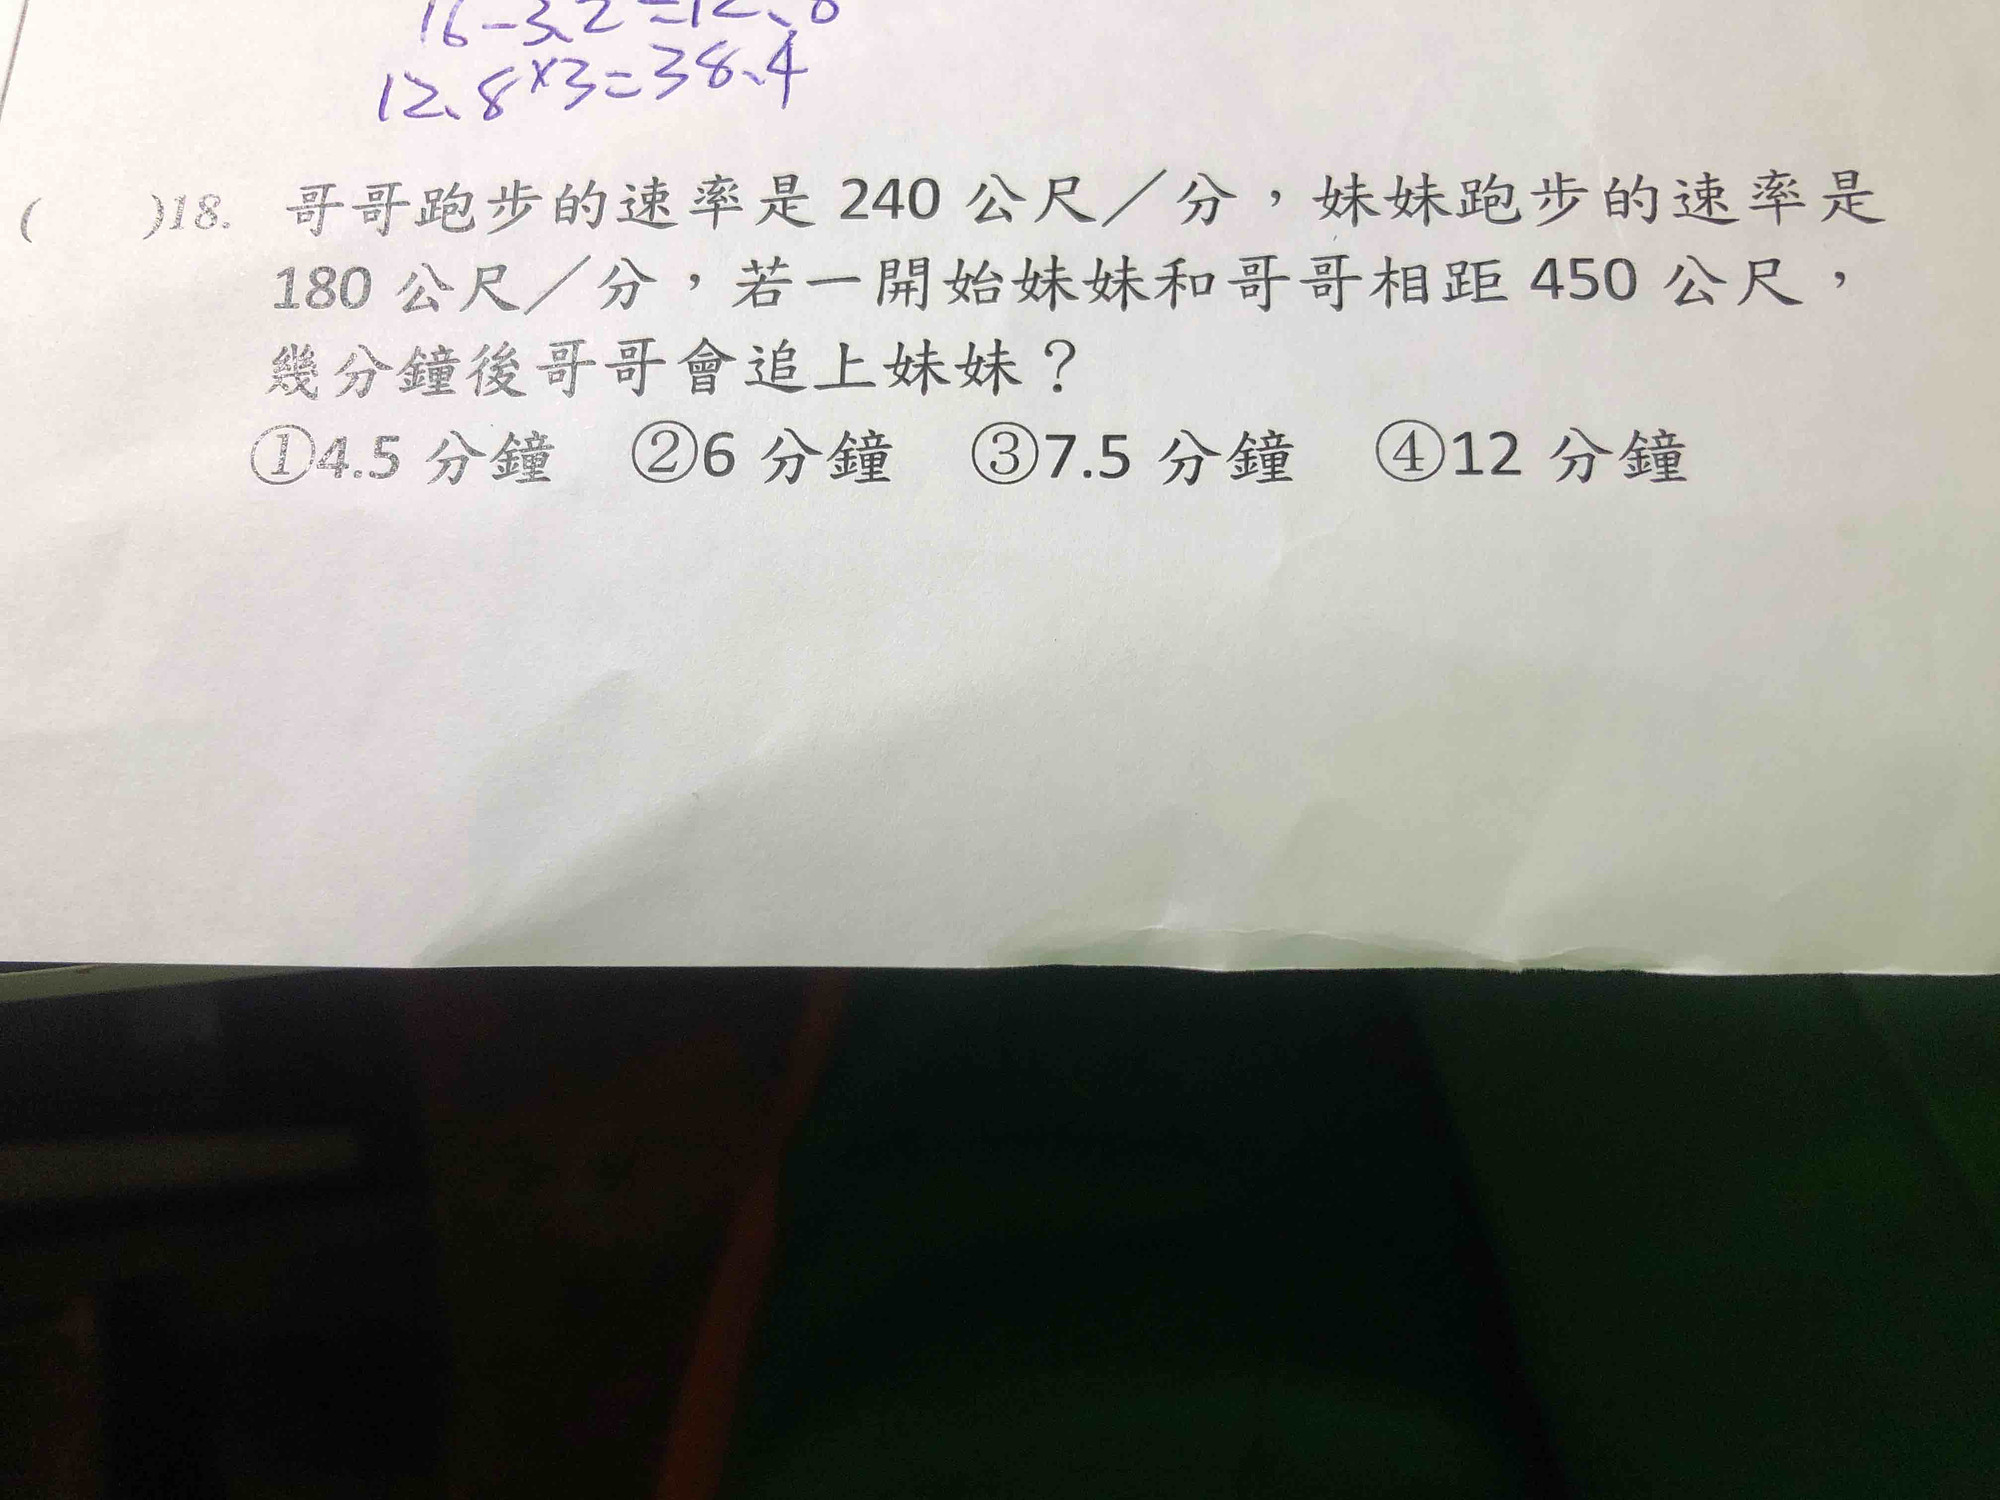 16-3.2=12.8
12.8×3=38.4
(　　)18. 哥哥跑步的速率是 240 公尺／分，妹妹跑步的速率是
180 公尺／分，若一開始妹妹和哥哥相距 450 公尺，
幾分鐘後哥哥會追上妹妹？
①4.5 分鐘　②6 分鐘　③7.5 分鐘　④12 分鐘